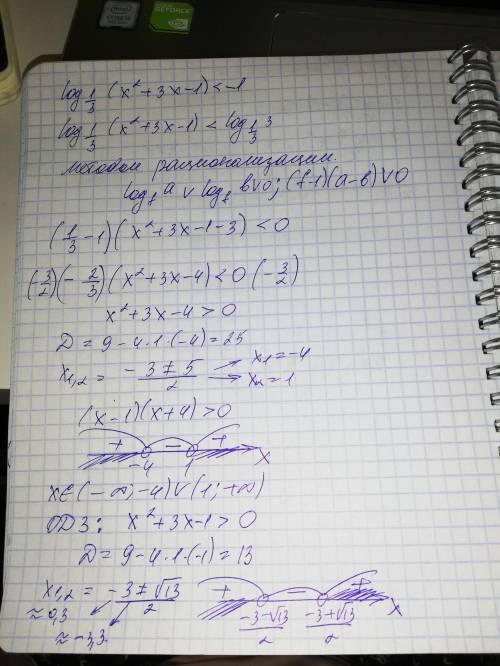 intel
GEFORCE
log_{1/3} (x² + 3x - 1) < -1
log_{1/3} (x² + 3x - 1) < log_{1/3} 3
методом рационализации.
log_f a ∨ log_f b ∨ 0; (f-1)(a-b) ∨ 0
(1/3 - 1)(x² + 3x - 1 - 3) < 0
(-3/2)(-2/3)(x² + 3x - 4) < 0 (-3/2)
x² + 3x - 4 > 0
D = 9 - 4·1·(-4) = 25
x₁,₂ = (-3 ∓ 5)/2 → x₁ = -4
→ x₂ = 1
(x-1)(x+4) > 0
+ - +
-4 1 x
x∈(-∞; -4)∪(1; +∞)
ОДЗ: x² + 3x - 1 > 0
D = 9 - 4·1·(-1) = 13
x₁,₂ = (-3 ∓ √13)/2
≈ 0,3
≈ -3,3
+ - +
(-3-√13)/2 (-3+√13)/2 x